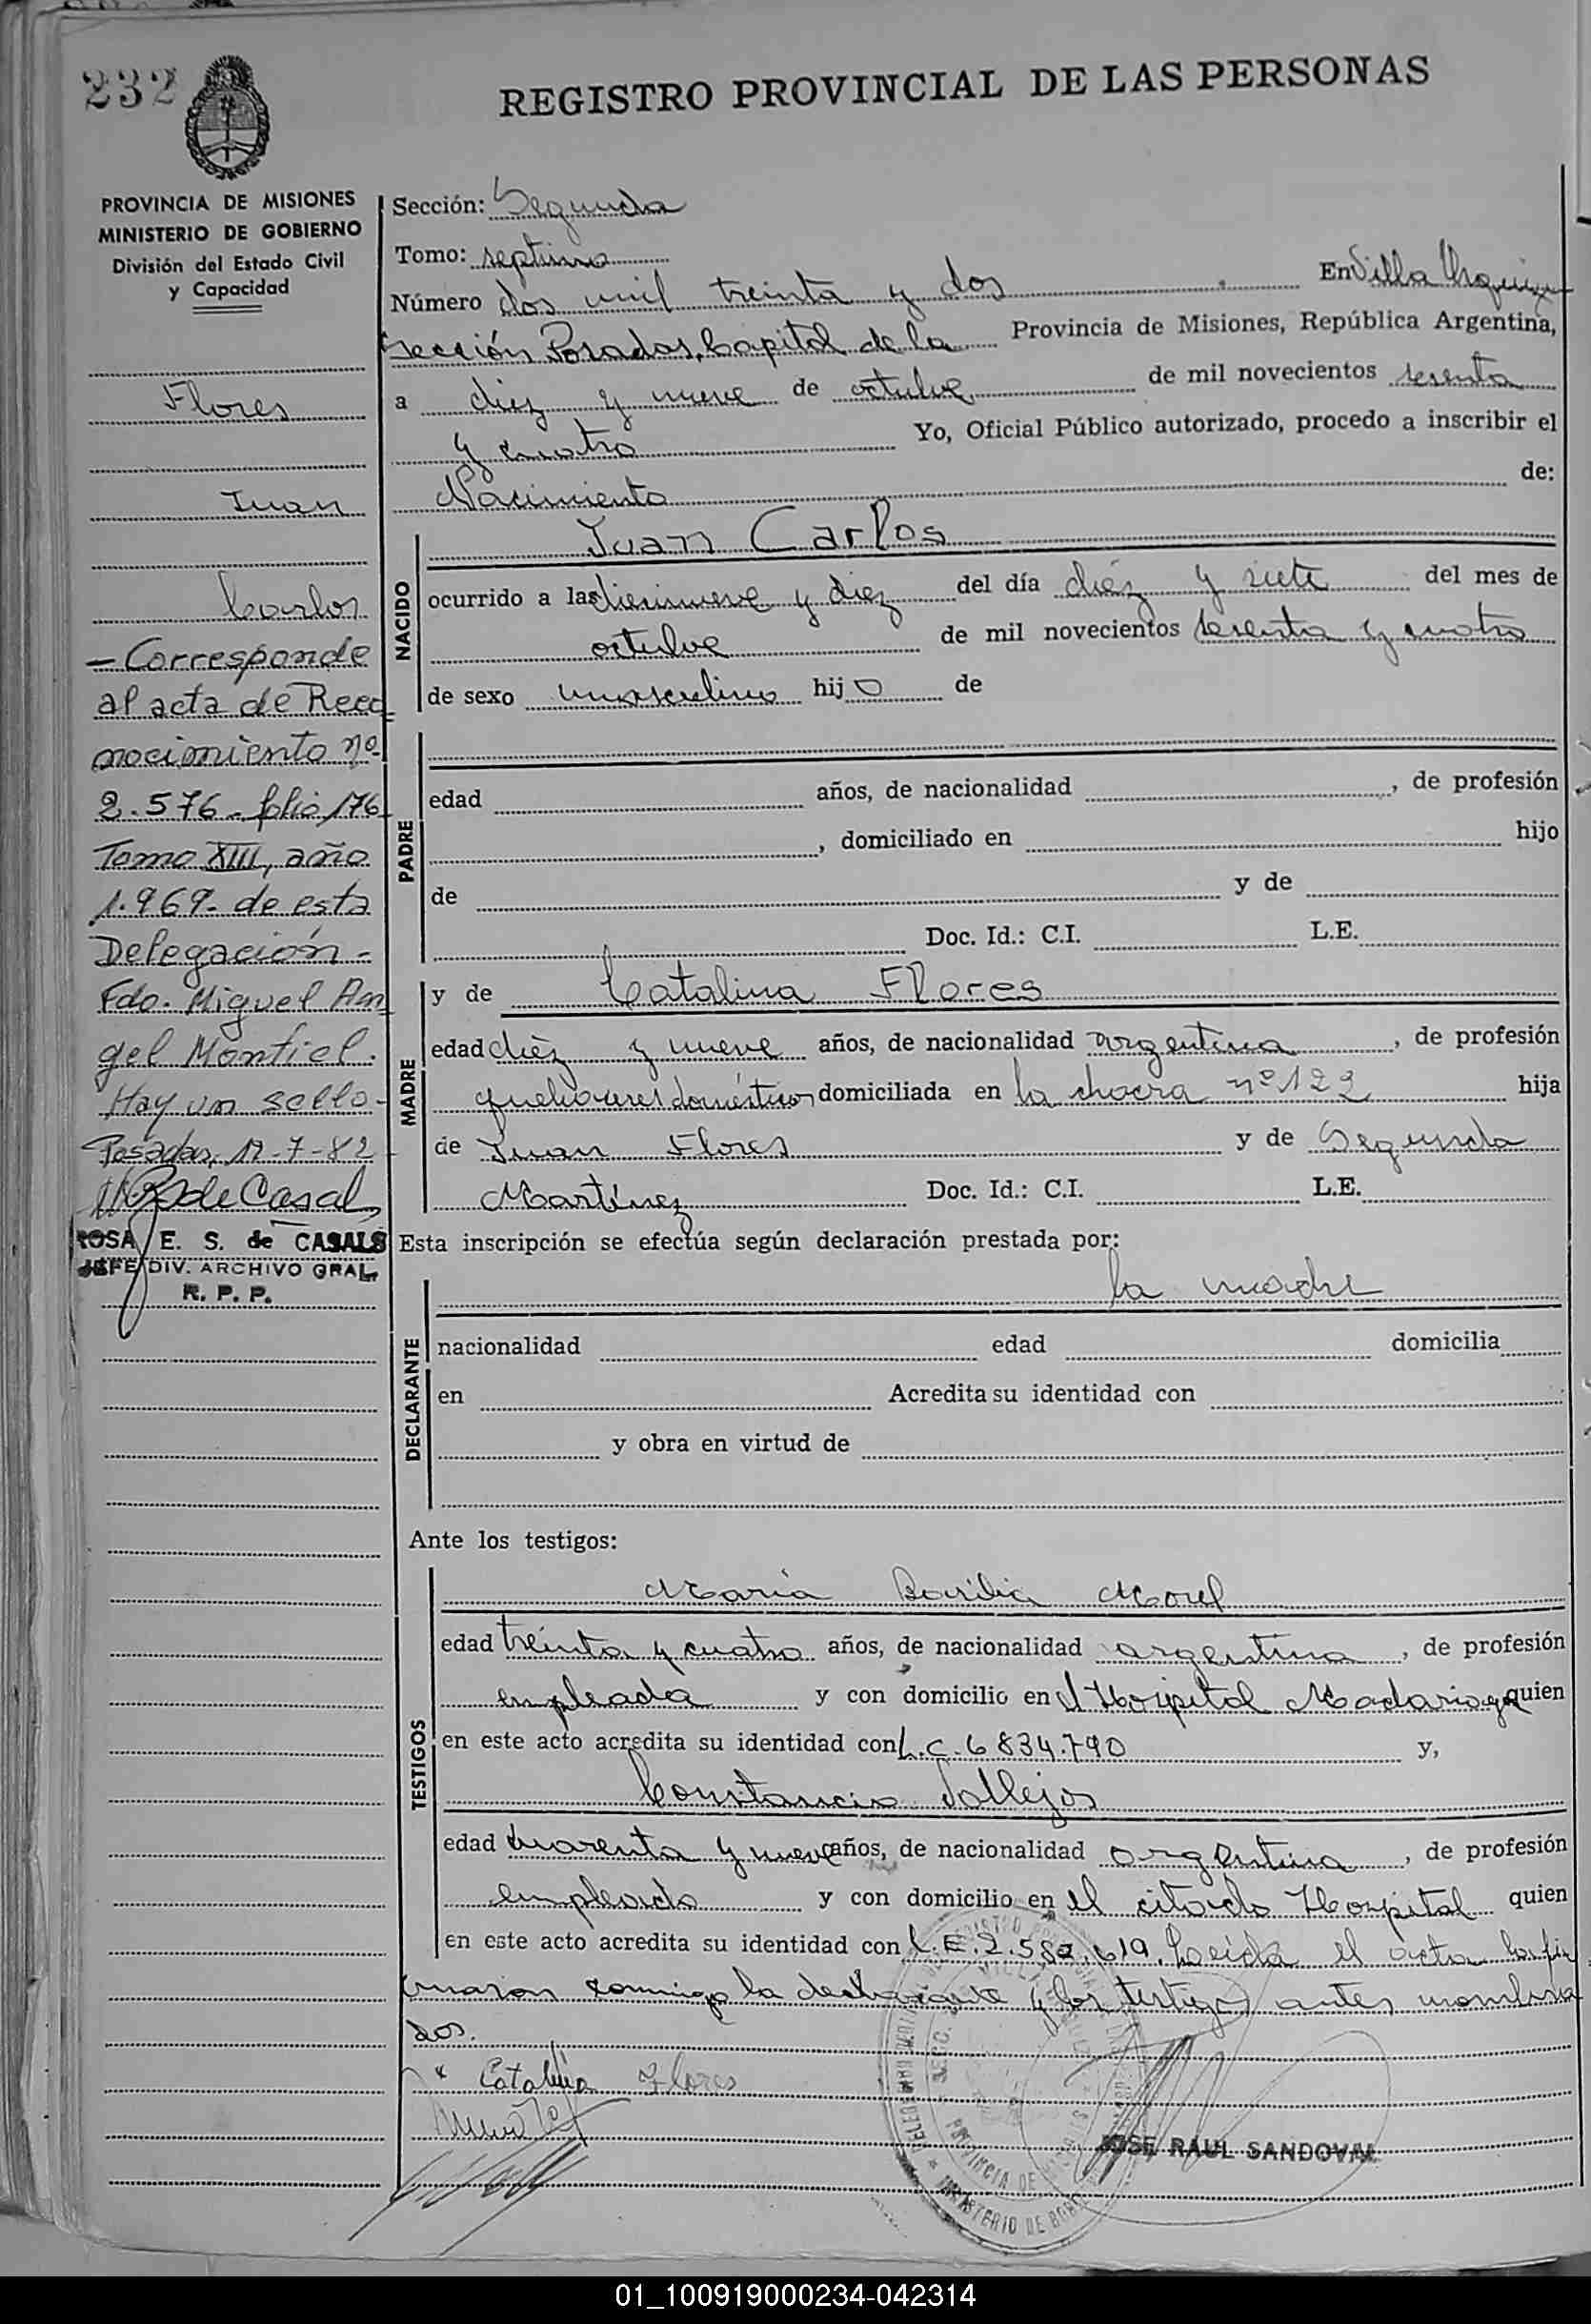 232
REGISTRO PROVINCIAL DE LAS PERSONAS
PROVINCIA DE MISIONES
MINISTERIO DE GOBIERNO
División del Estado Civil
y Capacidad
Flores
Juan
Carlos
- Corresponde
al acta de Reco
nocimiento nº
2.576 - folio 176
Tomo XIII, año
1.969 - de esta
Delegación -
Fdo. Miguel An
gel Montiel.
Hay un sello -
Posadas, 12-7-82
de Casals
ROSA E. S. de CASALS
JEFE DIV. ARCHIVO GRAL.
R. P. P.
Sección: Segunda
Tomo: septimo
Número dos mil treinta y dos En Villa Urquiza
Sección Posadas, Capital de la Provincia de Misiones, República Argentina,
a diez y nueve de octubre de mil novecientos sesenta
y cuatro Yo, Oficial Público autorizado, procedo a inscribir el
Nacimiento de:
NACIDO
Juan Carlos
ocurrido a las diecinueve y diez del día diez y siete del mes de
octubre de mil novecientos sesenta y cuatro
de sexo masculino hijo de
PADRE
edad años, de nacionalidad , de profesión
, domiciliado en hijo
de y de
Doc. Id.: C.I. L.E.
MADRE
y de Catalina Flores
edad diez y nueve años, de nacionalidad argentina , de profesión
quehaceres domésticos domiciliada en la chacra nº 122 hija
de Juan Flores y de Segunda
Martínez Doc. Id.: C.I. L.E.
Esta inscripción se efectúa según declaración prestada por:
DECLARANTE
la madre
nacionalidad edad domicilia
en Acredita su identidad con
y obra en virtud de
Ante los testigos:
TESTIGOS
María Morel
edad treinta y cuatro años, de nacionalidad argentina , de profesión
empleada y con domicilio en el Hospital Madariaga quien
en este acto acredita su identidad con L.C. 6 834.790 y,
Constancio Vallejos
edad cuarenta y nueve años, de nacionalidad argentina , de profesión
empleado y con domicilio en el citado Hospital quien
en este acto acredita su identidad con L.E. 2.582.619. Leída el acta la fir
maron conmigo la declarante y los testigos antes nombra
dos.
Catalina Flores
JOSE RAUL SANDOVAL
01_100919000234-042314